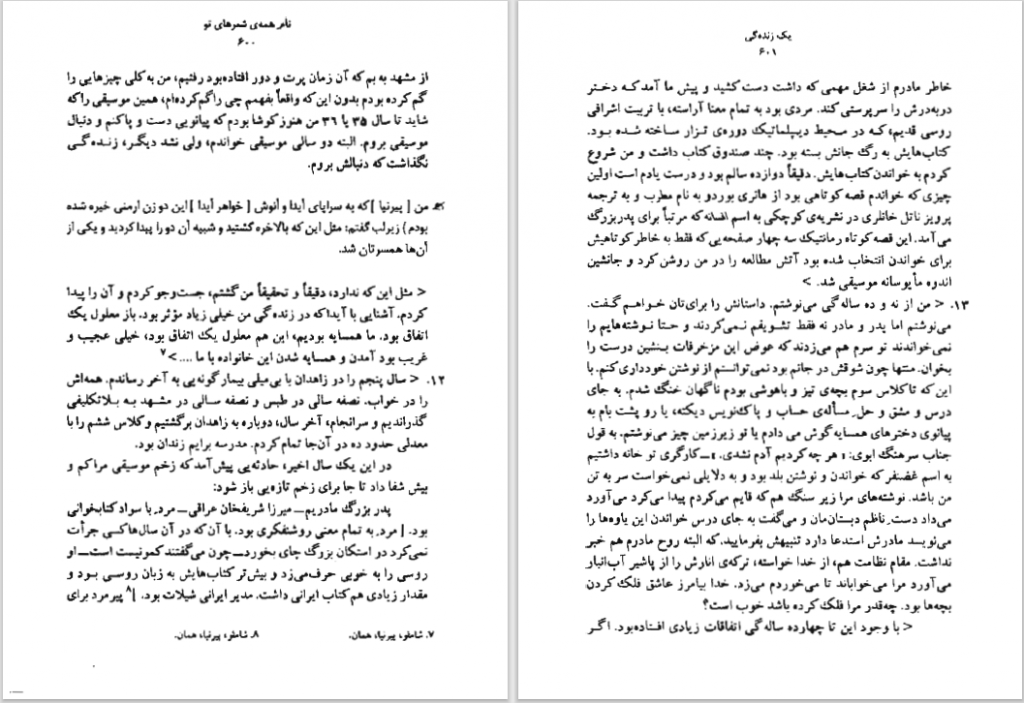 نام همه‌ی شعرهای تو
۶۰۰
از مشهد به بم که آن زمان پرت و دور افتاده‌بود رفتیم، من به‌کلی چیزهایی را
گم کرده بودم بدون این‌که واقعاً بفهمم چی راگم‌کرده‌ام، همین موسیقی راکه
شاید تا سال ۳۵ یا ۳۶ من هنوزکوشا بودم‌که پیانویی دست و پاکنم و دنبال
موسیقی بروم. البته دو سالی موسیقی خواندم، ولی نشد دیگر، زنده‌گی
نگذاشت که دنبالش بروم.
من [ پیرنیا ]که به سراپای آیدا و آنوش [ خواهر آیدا ] این‌دوزن ارمنی خیره شده
بودم) زیرلب گفتم: مثل این‌که بالاخره گشتید و شبیه آن دورا پیداکردید و یکی از
آن‌ها همسرتان شد.
< مثل این که ندارد، دقیقاً و تحقیقاً من‌گشتم، جست‌وجو کردم و آن را پیدا
کردم. آشنایی با آیداکه در زنده‌گی من خیلی زیاد مؤثر بود. باز معلول یک
اتفاق بود. ما همسایه بودیم، این هم معلول یک اتفاق بود، خیلی عجیب و
غریب بود آمدن و همسایه شدن این خانواده با ما .... >۷
۱۲. < سال پنجم را دو زاهدان با بی‌میلی بیمارگونه‌یی به آخر رساندم. همه‌اش
را در خواب. نصفه سالی در طبس و نصفه سالی در مشهد به بلاتکلیفی
گذراندیم و سرانجام، آخر سال، دوباره به زاهدان برگشتیم وکلاس ششم را با
معدلی حدود ده در آن‌جا تمام‌کردم. مدرسه برایم زندان بود.
در این یک سال اخیر، حادثه‌یی پیش‌آمدکه زخم موسیقی مراکم و
بیش شفا داد تا جا برای زخم تازه‌یی باز شود:
پدر بزرگ مادریم ــ میرزا شریفخان عراقی ــ مرد با سواد کتابخوانی
بود. [ مرد به تمام معنی روشنفکری بود. با آن‌که در آن سال‌هاکسی جرأت
نمی‌کرد در استکان بزرگ چای بخورد ــ چون می‌گفتند کمونیست است ــ او
روسی را به خوبی حرف‌می‌زد و بیش‌تر کتاب‌هایش به زبان روسی بود و
مقدار زیادی هم‌کتاب ایرانی داشت. مدیر ایرانی شیلات بود. ]۸ پیرمرد برای
۷. شاملو، پیرنیا، همان. ۸. شاملو، پیرنیا، همان.
یک زنده‌گی
۶۰۱
خاطر مادرم از شغل مهمی که داشت دست کشید و پیش ما آمدکه دختر
دربه‌درش را سرپرستی کند. مردی بود به تمام معنا آراسته، با تربیت اشرافی
روسی قدیم،که در محیط دیپلماتیک دوره‌ی تزار ساخته شده بود.
کتاب‌هایش به رگ جانش بسته بود. چند صندوق کتاب داشت و من شروع
کردم به خواندن‌کتاب‌هایش. دقیقاً دوازده سالم بود و درست یادم است اولین
چیزی که خواندم قصه کوتاهی بود از هانری بوردو به نام مطرب و به ترجمه
پرویز ناتل خانلری در نشریه‌ی کوچکی به اسم افسانه‌که مرتباً برای پدربزرگ
می‌آمد. این قصه‌کوتاه رمانتیک سه چهار صفحه‌یی‌که فقط به خاطرکوتاهیش
برای خواندن انتخاب شده بود آتش مطالعه را در من روشن کرد و جانشین
اندوه مأیوسانه موسیقی شد. >
۱۳. < من از نه و ده ساله‌گی می‌نوشتم. داستانش را برای‌تان خواهم گفت.
می‌نوشتم اما پدر و مادر نه فقط تشویقم نمی‌کردند و حتا نوشته‌هایم را
نمی‌خواندند تو سرم هم می‌زدند که عوض این مزخرفات بنشین درست را
بخوان. منتها چون شوقش در جانم بود نمی‌توانستم از نوشتن خودداری‌کنم. با
این که تاکلاس سوم بچه‌ی تیز و باهوشی بودم ناگهان خنگ شدم. به جای
درس و مشق و حل مسأله‌ی حساب و پاک‌نویس دیکته، یا رو پشت بام به
پیانوی دخترهای همسایه گوش می دادم یا تو زیرزمین چیز می‌نوشتم. به قول
جناب سرهنگ ابوی: «هر چه کردیم آدم نشدی.» ــ کارگری تو خانه داشتیم
به اسم غضنفر که خواندن و نوشتن بلد بود و به دلایلی نمی‌خواست سر به تن
من باشد. نوشته‌های مرا زیر سنگ هم‌که قایم می‌کردم پیدا می‌کرد می‌آورد
می‌داد دست ناظم دبستان‌مان و می‌گفت به جای درس خواندن این یاوه‌ها را
می‌نویسد مادرش استدعا دارد تنبیهش بفرمایید.که البته روح مادرم هم خبر
نداشت. مقام نظامت هم، از خدا خواسته، ترکه‌ی انارش را از پاشیر آب‌انبار
می‌آورد مرا می‌خواباند تا می‌خوردم می‌زد. خدا بیامرز عاشق فلک کردن
بچه‌ها بود. چه‌قدر مرا فلک کرده باشد خوب است؟
< با وجود این تا چهارده ساله‌گی اتفاقات زیادی افتاده‌بود. اگر